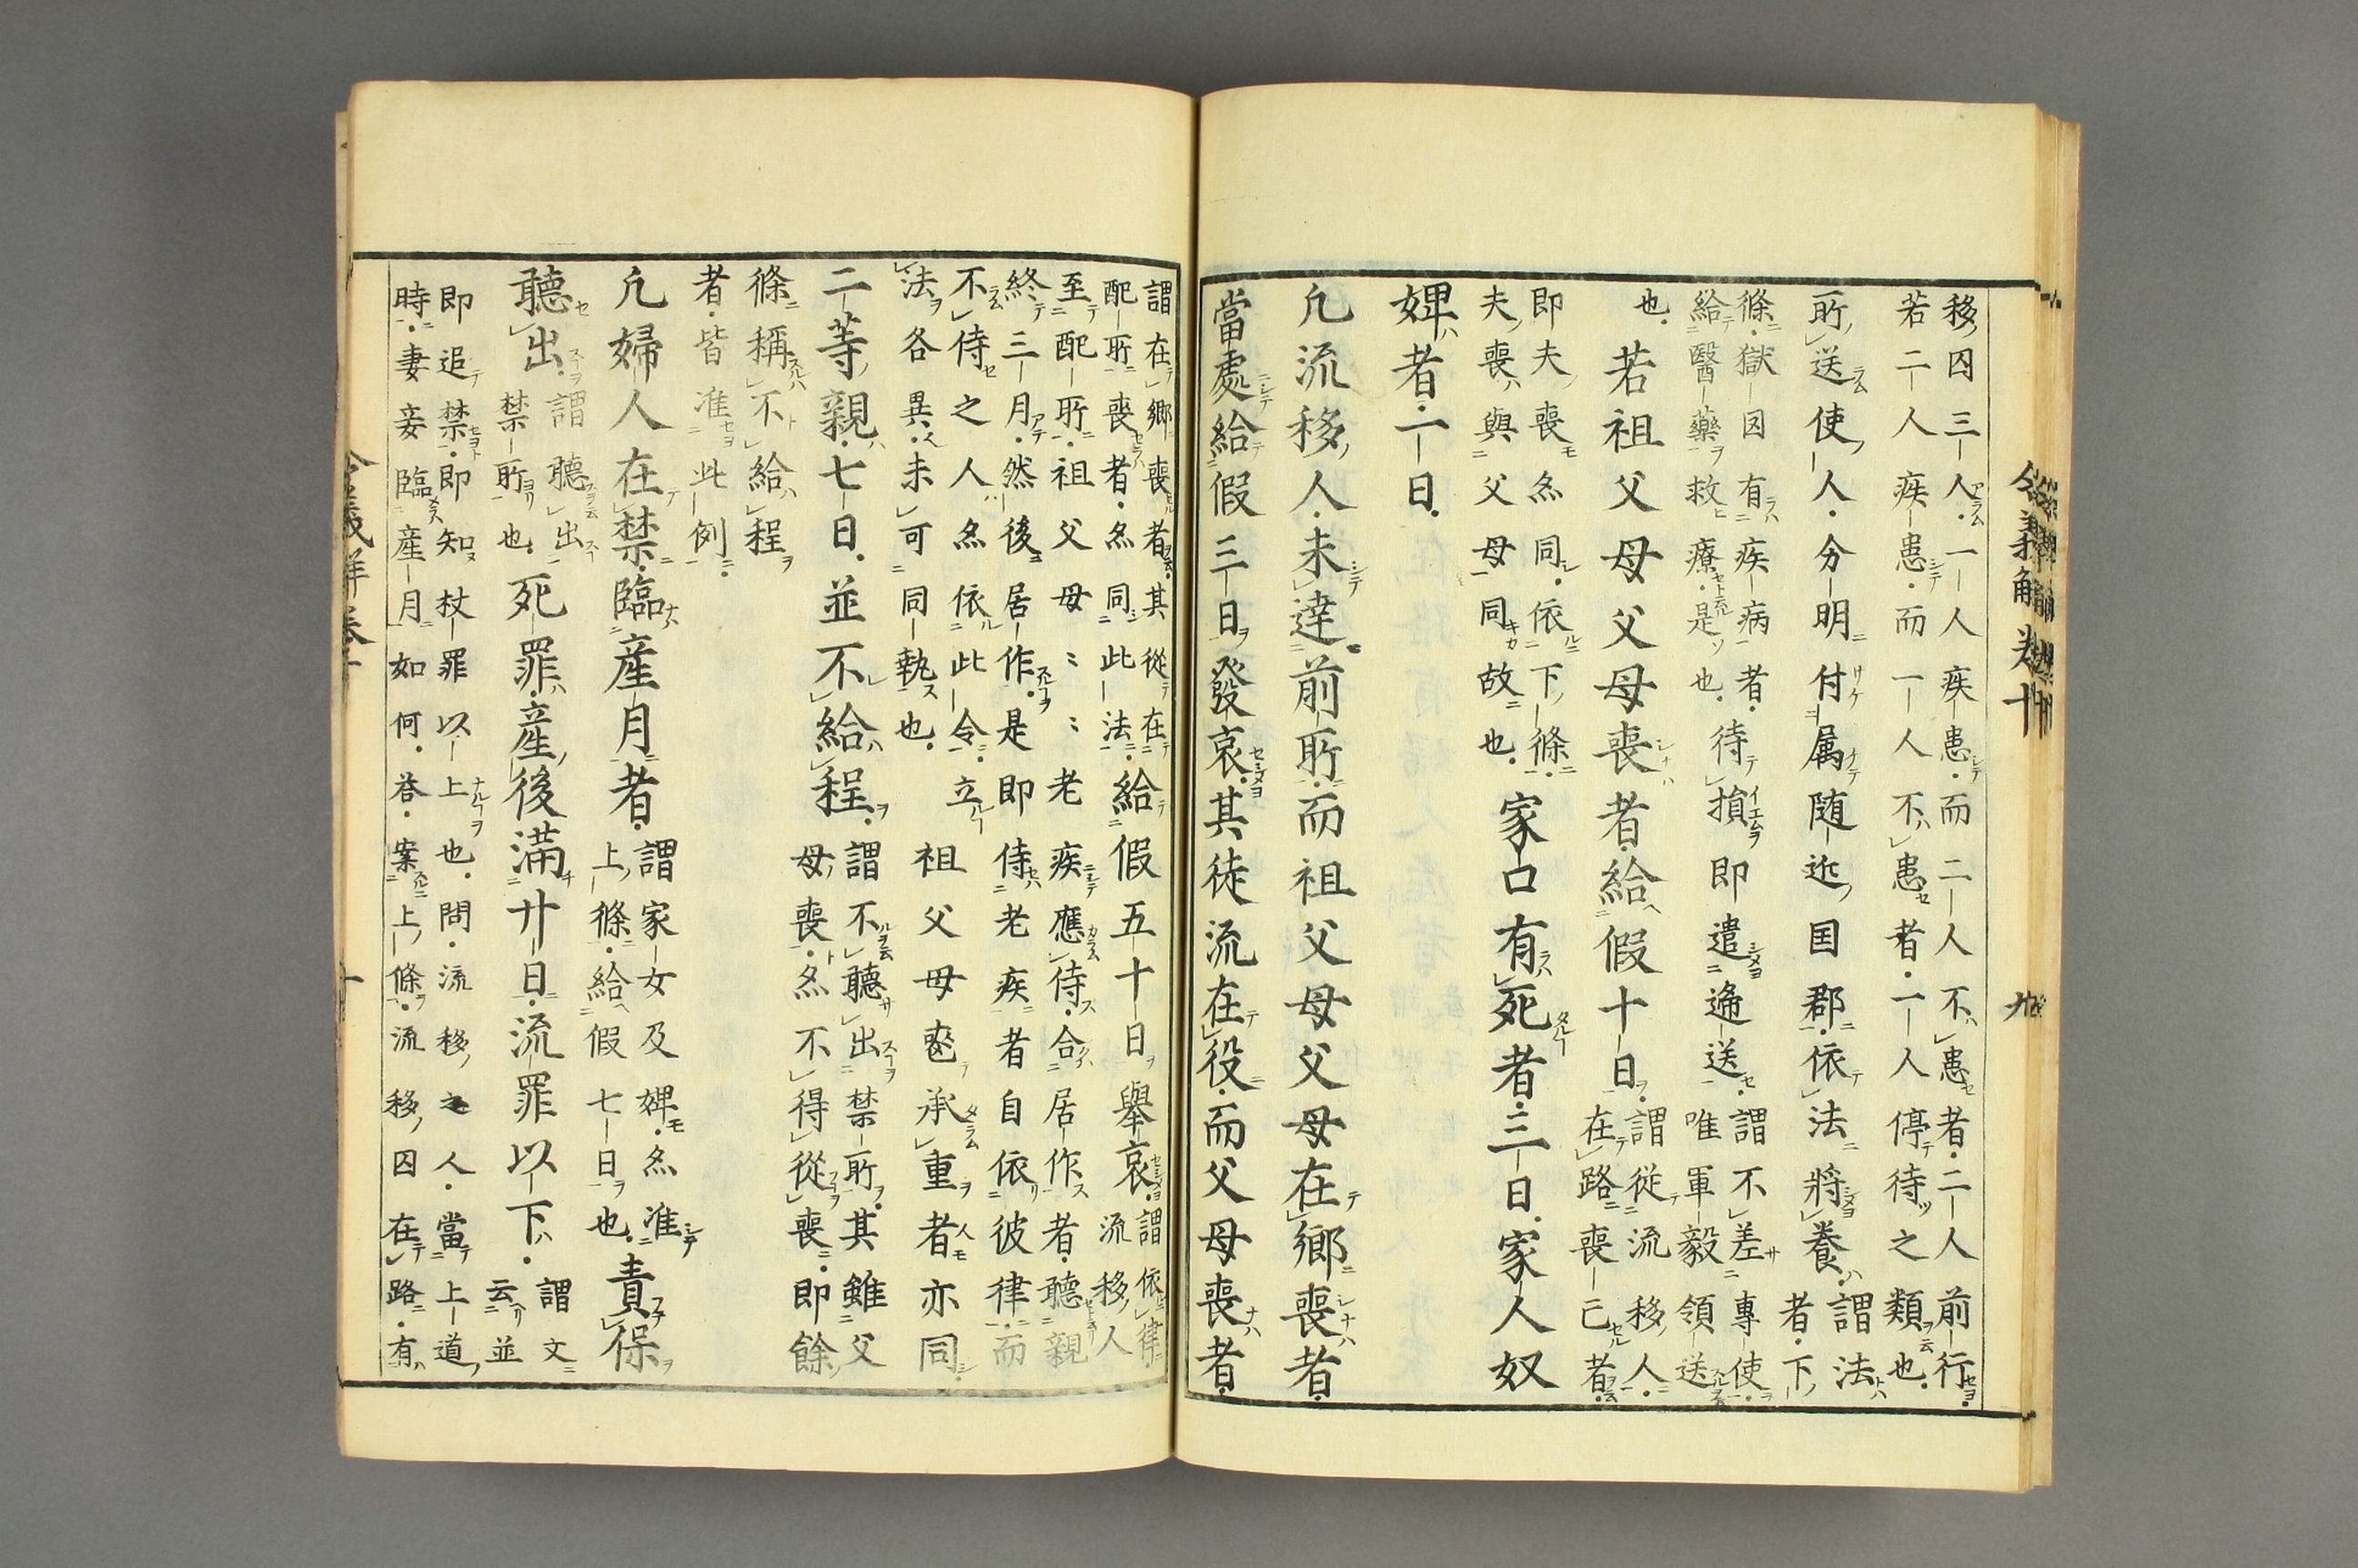 令義解卷十 九
移囚三人一人疾患而二人不患者二人前行
若二人疾患而一人不患者一人停待之類也
所送使人分明付属随近国郡依法將養
謂法
者下
條獄囚有疾病者
給醫藥救療是也
待損即遣逓送
謂不差專使
唯軍毅領送
也
若祖父母父母喪者給假十日
謂從流移人
在路喪已者
即夫喪亦同依下條
夫喪與父母同故也
家口有死者三日家人奴
婢者一日
凢流移人未達前所而祖父母父母在鄉喪者
當處給假三日發哀其徒流在役而父母喪者
謂在鄉喪者其從在
配所喪者亦同此法
給假五十日舉哀
謂依律
流移人
至配所祖父母〻〻老疾應侍合居作者聽親
終三月然後居作是即侍老疾者自依彼律而
不侍之人亦依此令立
法各異未可同執也
祖父母喪承重者亦同
二等親七日並不給程
謂不聽出禁所其雖父
母喪亦不得從喪即餘
條稱不給程
者皆准此例
凢婦人在禁臨産月者
謂家女及婢亦准
上條給假七日也
責保
聽出
謂聽出
禁所也
死罪産後滿廿日流罪以下
謂文
云並
即追禁即知杖罪以上也問流移之人當上道
時妻妾臨産月如何荅案上條流移囚在路有